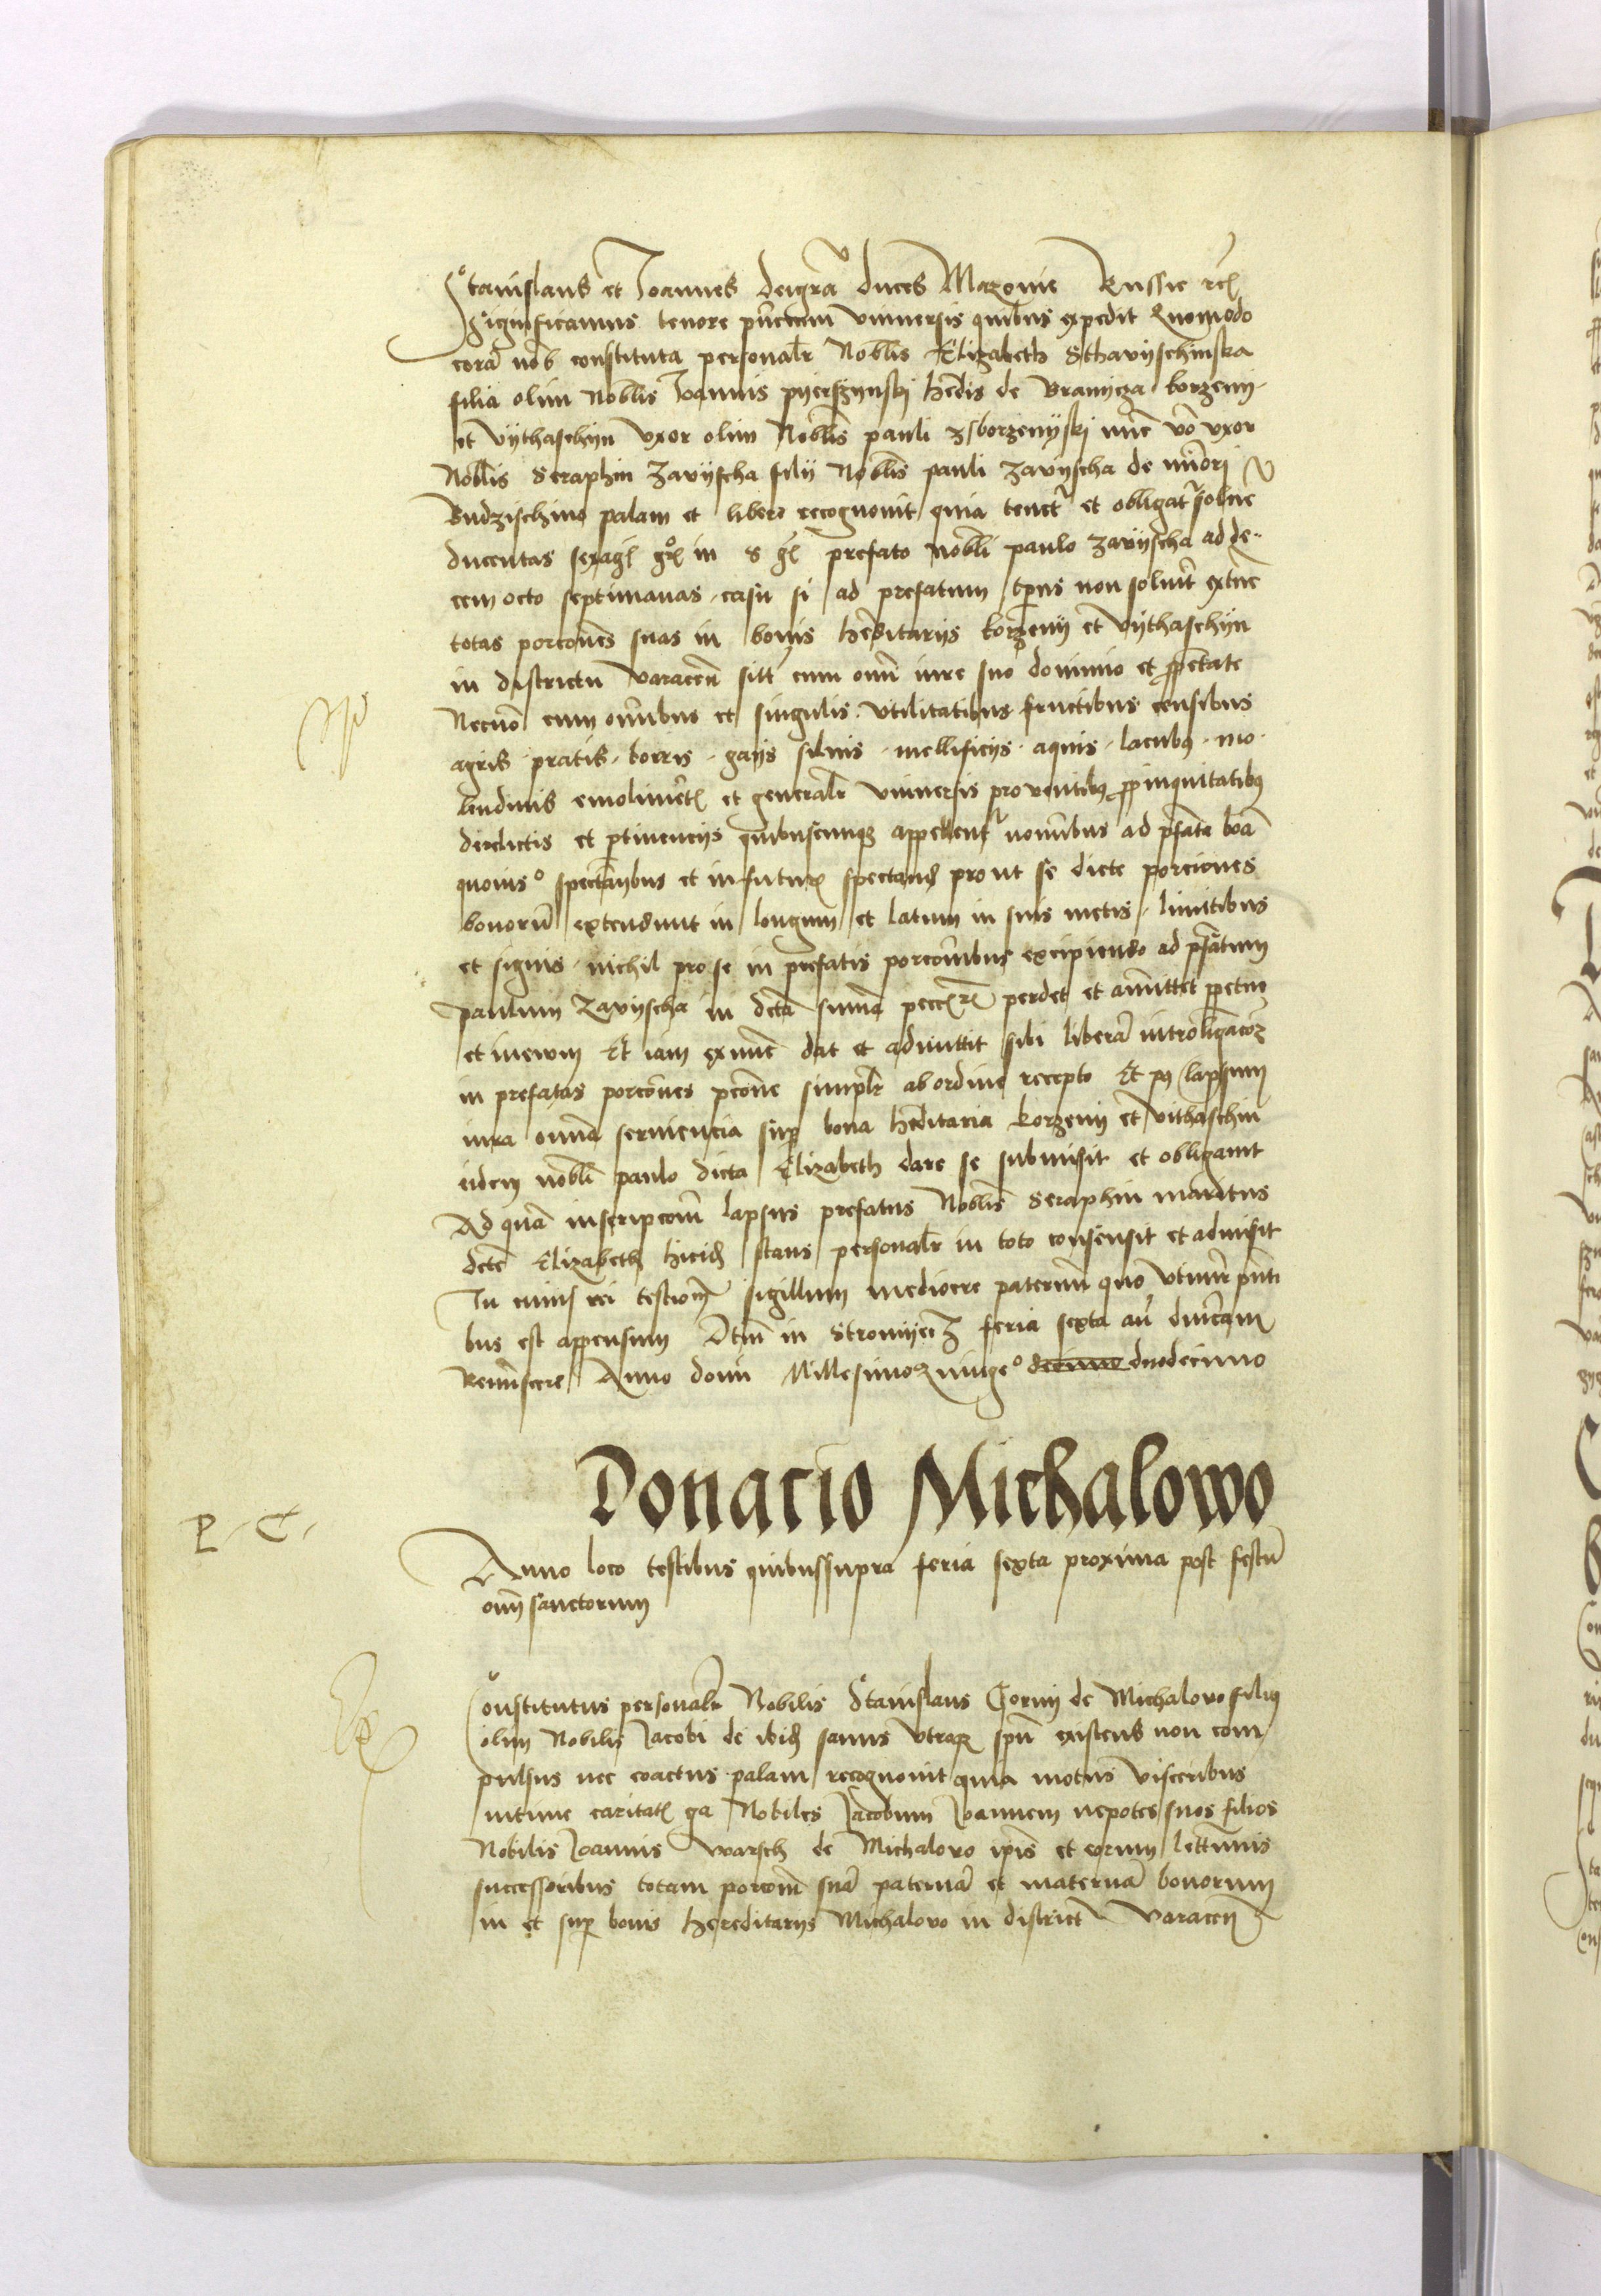 Stanislaus et Joannes deigrã duces Mazovie Russie etc
Significamus tenore pñcium universis quibus expedit Quomodo
corã nob constituta personalr Nobilis Elizabeth Sthavyschinska
filia olim Nobilis Joannis pyersgynskj hedis de Branycza korzenij
et vythaschyn vxor olim Nobilis pauli zborzenyskj nũc vo vxor
Nobilis Seraphin Zavyscha filij Nobilis pauli zavyscha de miñori
Budzischino palam et libere recognovit quia tenetr et obligatr solve
ducentas sexag gr in prefato nobli paulo zavyscha ad de-
cem octo septimanas casu si ad prefatum tpus non solverit extũc
totas porcones suas in bonis heditarijs korzenij et vythaschyn
in districtu varacen sitt cum omi iure suo dominio et ppetate
Necnõ cum omibus et singulis utilitatibus fructibus censibus
agris pratis borris gajis silvis mellificijs aquis lacubus mo-
lendinis emolimet et generalr universis proventibus ppinquitatibus
derelictis et ptinencijs quibuscunq appellentr nomibus ad pfata boã
quovis spectãtibus et infutur spectand prout se dicte porciones
bonorũ extendunt in longum et latum in suis metis limitibus
et signis nichil pro se in prefatis porcoibus excipiendo ad pfatum
paulum Zavyscha in dcta suma pecc perdet et amittet ppetuo
et inevum Et iam exnũc dat et admittit sibi liberã introligacoz
in prefatas porcones pcone simplr ab ordine recepto Et p lapsum
iura omã serviencia sup bona heditaria korzenij et vithaschin
eidem nobli paulo dicta Elizabeth dare se submisit et obligavit
Ad quã inscripcom lapsus prefatus Nobilis Seraphin maritus
dcte Elizabeth hicid stans personalr in toto consensit et admisit
In cuius rei testiom sigillum mediocre paternũ quo utimr pñti
bus est appensum Dtm in Stromyecz feria sexta añ dnicam
Reminiscere Anno domi Millesimoquinge decimo duodecimo
Donacio Michalowo
P. C.
Anno loco testibus quibussupra feria sexta proxima post festũ
omi sanctorum
Constitutus personalr Nobilis Stanislaus Gorny de Michalovo filius
olim Nobilis Jacobi de ibid sanus utraq spũ existens non com
pulsus nec coactus palam recognovit quia motus visceribus
intime caritatis ga Nobiles Jacobum Joannem nepotes suos filios
Nobilis Joannis warsch de Michalovo ipis et eorum lettimis
successoribus totam porcom suã paternã et maternã bonorum
in et sup bonis hereditarijs Michalovo in district varacen